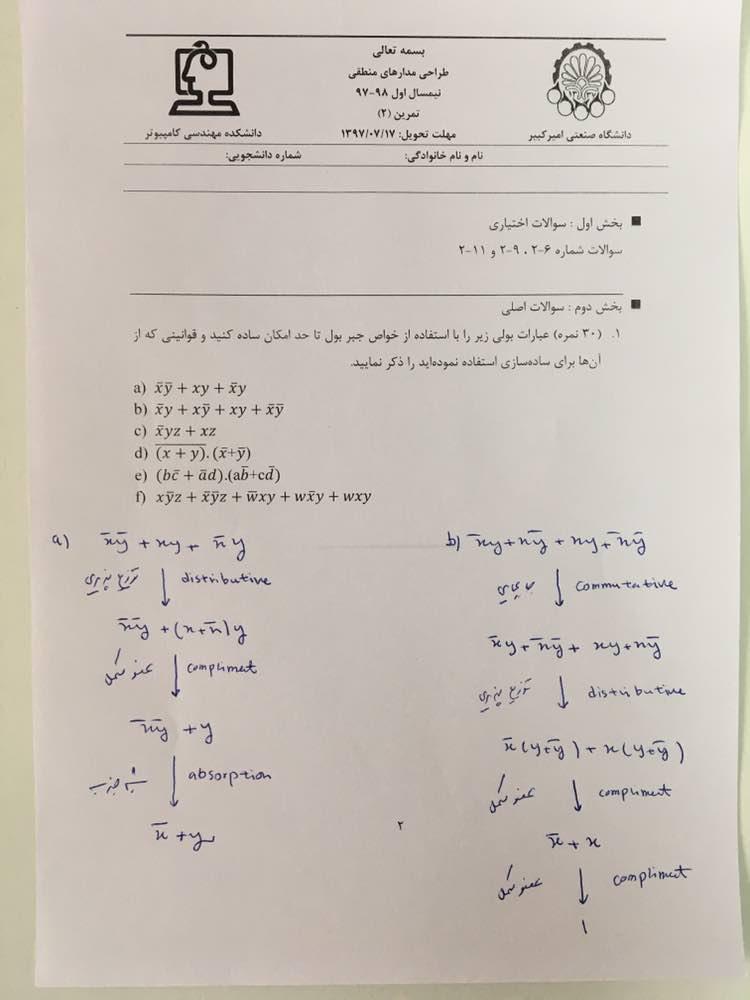 بسمه تعالی
طراحی مدارهای منطقی
نیمسال اول ۹۸-۹۷
تمرین (۲)
دانشگاه صنعتی امیرکبیر
مهلت تحویل: ۱۳۹۷/۰۷/۱۷
دانشکده مهندسی کامپیوتر
نام و نام خانوادگی: شماره دانشجویی:
■ بخش اول : سوالات اختیاری
سوالات شماره ۶-۲ ، ۹-۲ و ۱۱-۲
■ بخش دوم : سوالات اصلی
۱. (۳۰ نمره) عبارات بولی زیر را با استفاده از خواص جبر بول تا حد امکان ساده کنید و قوانینی که از
آن‌ها برای ساده‌سازی استفاده نموده‌اید را ذکر نمایید.
a) x̄ȳ + xy + x̄y
b) x̄y + xȳ + xy + x̄ȳ
c) x̄yz + xz
d) \overline{(x + y)}.(x̄+ȳ)
e) (bc̄ + ād).(ab̄+cd̄)
f) xȳz + x̄ȳz + w̄xy + wx̄y + wxy
a) x̄ȳ + xy + x̄y
توزیع پذیری ↓ distributive
x̄ȳ + (x+x̄)y
عضو مکمل ↓ compliment
x̄ȳ + y
شبه جذب ↓ absorption
x̄ + y
b) x̄y + xȳ + xy + x̄ȳ
جابجایی ↓ commutative
x̄y + x̄ȳ + xy + xȳ
توزیع پذیری ↓ distributive
x̄(y+ȳ) + x(y+ȳ)
عضو مکمل ↓ compliment
x̄ + x
عضو مکمل ↓ compliment
1
۲